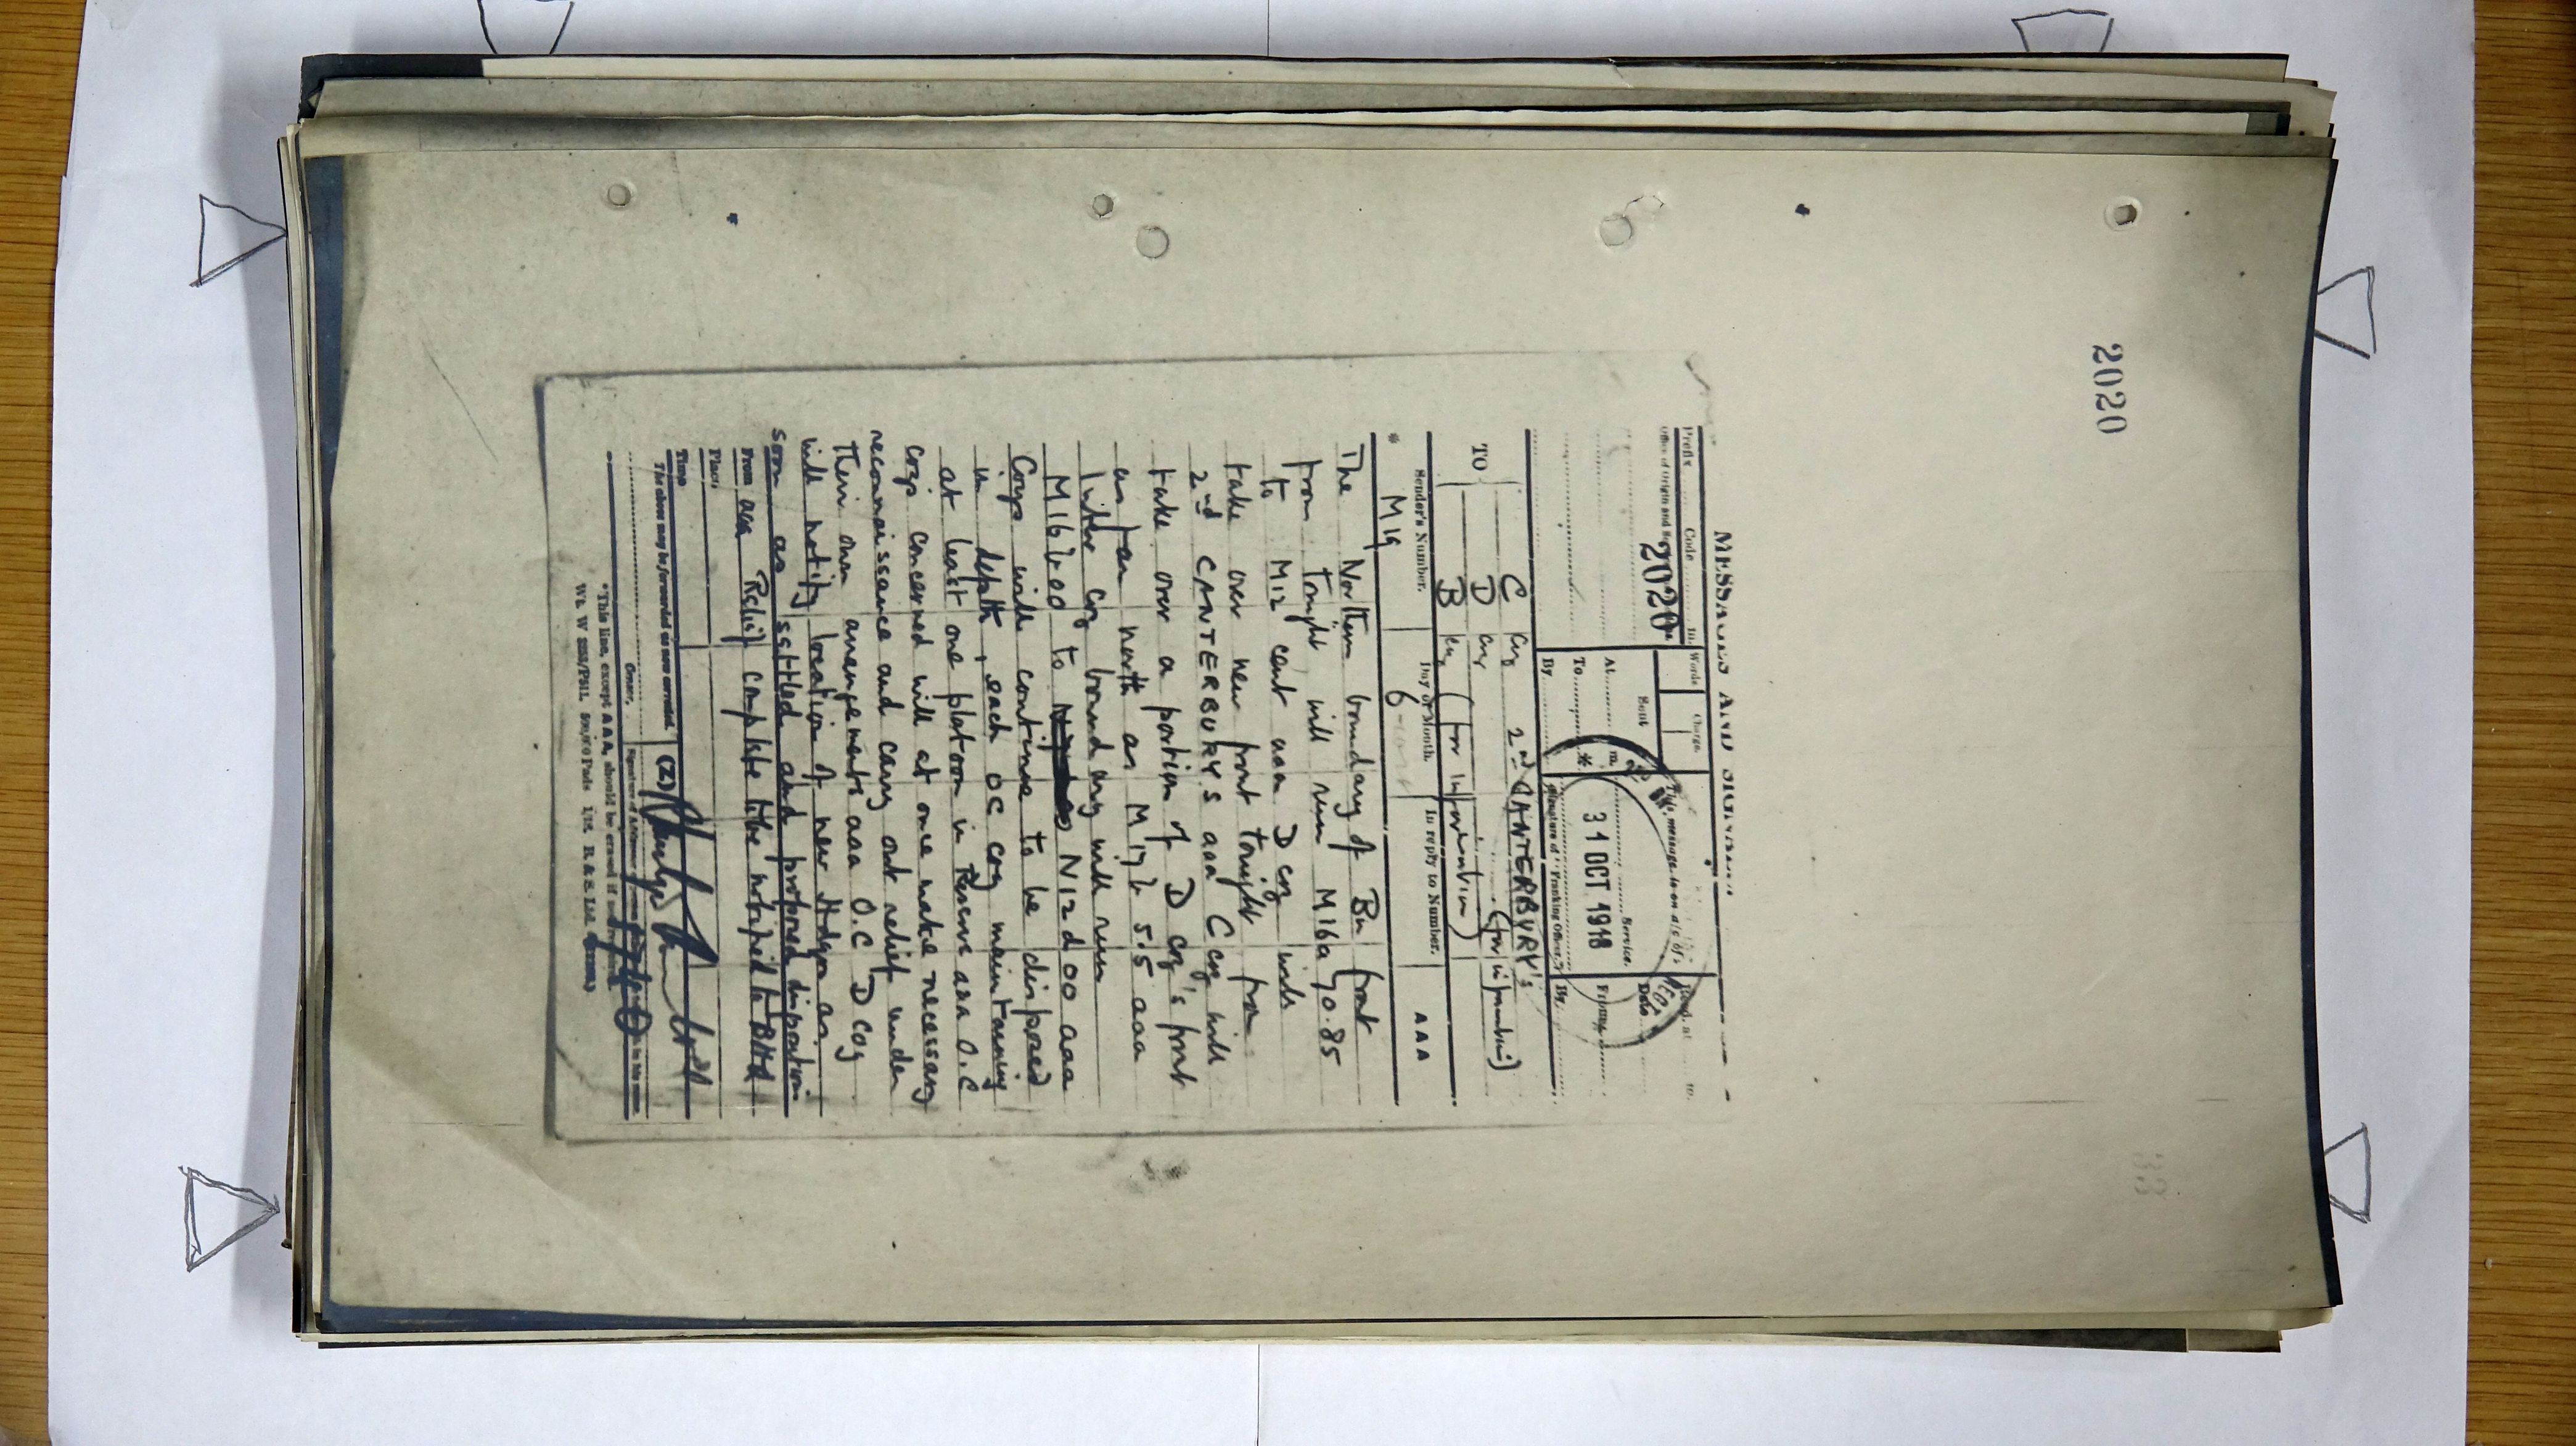 2020
33
MESSAGES AND SIGNALS
Prefix Code m. Words Charge.
Office of Origin and
2020
Sent
At m.
To
By
This message is on a/c of:
Service.
31 OCT 1918
Signature of "Franking Officer."
Recd. at m.
Date
From
By
TO
C Coy 2nd CANTERBURY'S
D Coy (for information)
B Coy (for information)
Sender's Number. Day of Month. In reply to Number. AAA
* M19 6
The Northern boundary of Bn front
from tonight will run M16a 90.85
to M12 cent aaa D Coy will
take over new front tonight from
2nd CANTERBURY'S aaa C Coy will
take over a portion of D Coy's front
as far north as M17b 5.5 aaa
Inter Coy boundary will run
M16b.00 to N12d00 aaa
Coys will continue to be disposed
in depth, each OC Coy maintaining
at least one platoon in Reserve aaa O.C
Coys concerned will at once make necessary
reconnaissance and carry out relief under
their own arrangements aaa O.C D Coy
will notify location of new Hdqrs as
soon as settled and proposed disposition
From aaa Relief complete to be notified to BHd
Place
Time
The above may be forwarded as now corrected. (Z)
Censor. Signature of Addressor
*This line, except AAA, should be erased if not
Wt. W 3253/P511. 500,000 Pads 1/18. B. & S. Ltd.